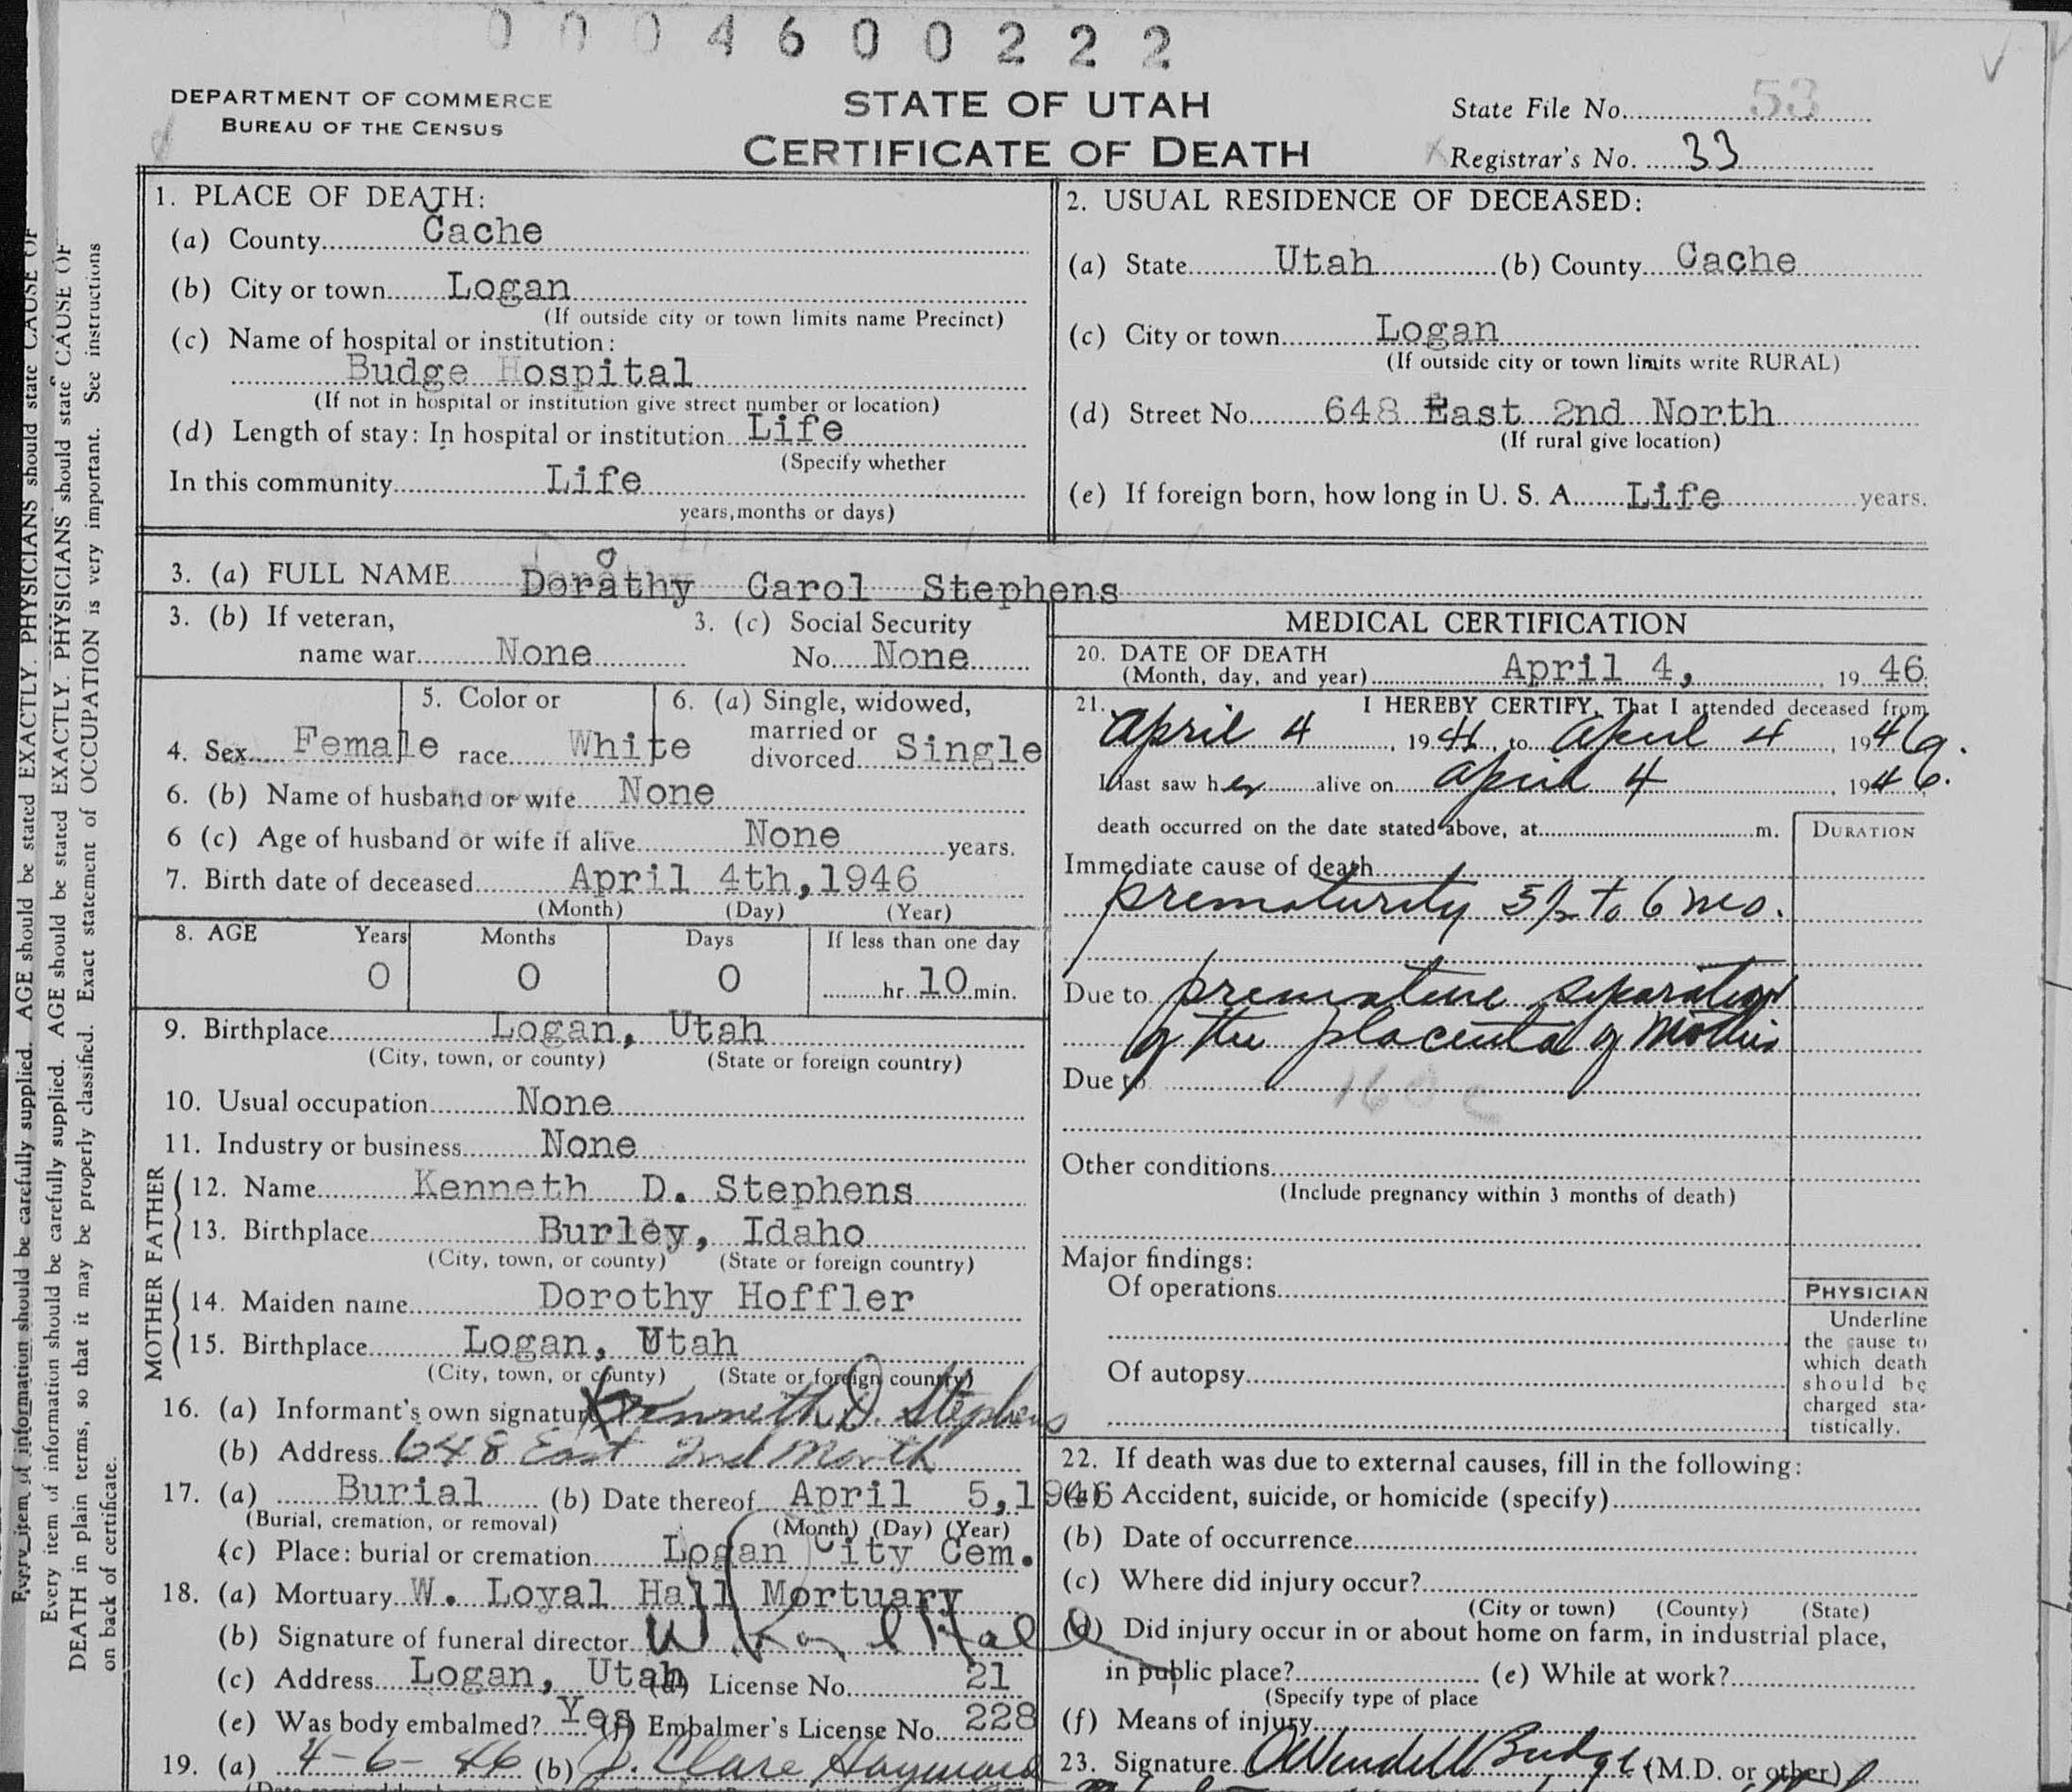 0004600222
DEPARTMENT OF COMMERCE
BUREAU OF THE CENSUS
STATE OF UTAH
CERTIFICATE OF DEATH
State File No. 53
Registrar's No. 33
1. PLACE OF DEATH:
(a) County Cache
(b) City or town Logan
(If outside city or town limits name Precinct)
(c) Name of hospital or institution:
Budge Hospital
(If not in hospital or institution give street number or location)
(d) Length of stay: In hospital or institution Life
(Specify whether
In this community Life
years, months or days)
2. USUAL RESIDENCE OF DECEASED:
(a) State Utah (b) County Cache
(c) City or town Logan
(If outside city or town limits write RURAL)
(d) Street No. 648 East 2nd North
(If rural give location)
(e) If foreign born, how long in U. S. A. Life years.
3. (a) FULL NAME Dorothy Carol Stephens
3. (b) If veteran,
name war None
3. (c) Social Security
No. None
4. Sex Female
5. Color or
race White
6. (a) Single, widowed,
married or
divorced Single
6. (b) Name of husband or wife None
6 (c) Age of husband or wife if alive None years.
7. Birth date of deceased April 4th, 1946
(Month) (Day) (Year)
8. AGE Years Months Days If less than one day
0 0 0 hr. 10 min.
9. Birthplace Logan, Utah
(City, town, or county) (State or foreign country)
10. Usual occupation None
11. Industry or business None
FATHER
12. Name Kenneth D. Stephens
13. Birthplace Burley, Idaho
(City, town, or county) (State or foreign country)
MOTHER
14. Maiden name Dorothy Hoffler
15. Birthplace Logan, Utah
(City, town, or county) (State or foreign country)
16. (a) Informant's own signature Kenneth D. Stephens
(b) Address 648 East 2nd North
17. (a) Burial (b) Date thereof April 5, 1946
(Burial, cremation, or removal) (Month) (Day) (Year)
(c) Place: burial or cremation Logan City Cem.
18. (a) Mortuary W. Loyal Hall Mortuary
(b) Signature of funeral director W Loyal Hall
(c) Address Logan, Utah (d) License No. 21
(e) Was body embalmed? Yes (f) Embalmer's License No. 228
19. (a) 4-6-46 (b) J. Clare Hayward
MEDICAL CERTIFICATION
20. DATE OF DEATH
(Month, day, and year) April 4, 1946
21. I HEREBY CERTIFY, That I attended deceased from
April 4, 19 to April 4, 1946.
I last saw her alive on April 4 1946.
death occurred on the date stated above, at m.
DURATION
Immediate cause of death
prematurity 5½ to 6 mo.
Due to premature separation
of the placenta of mother
Due to
160c
Other conditions
(Include pregnancy within 3 months of death)
Major findings:
Of operations
Of autopsy
PHYSICIAN
Underline
the cause to
which death
should be
charged sta-
tistically.
22. If death was due to external causes, fill in the following:
(a) Accident, suicide, or homicide (specify)
(b) Date of occurrence
(c) Where did injury occur?
(City or town) (County) (State)
(d) Did injury occur in or about home on farm, in industrial place,
in public place? (e) While at work?
(Specify type of place
(f) Means of injury
23. Signature O Wendell Budge (M.D. or other)
Every item of information should be carefully supplied. AGE should be stated EXACTLY. PHYSICIANS should state CAUSE OF
Every item of information should be carefully supplied. AGE should be stated EXACTLY. PHYSICIANS should state CAUSE OF
DEATH in plain terms, so that it may be properly classified. Exact statement of OCCUPATION is very important. See instructions
on back of certificate.